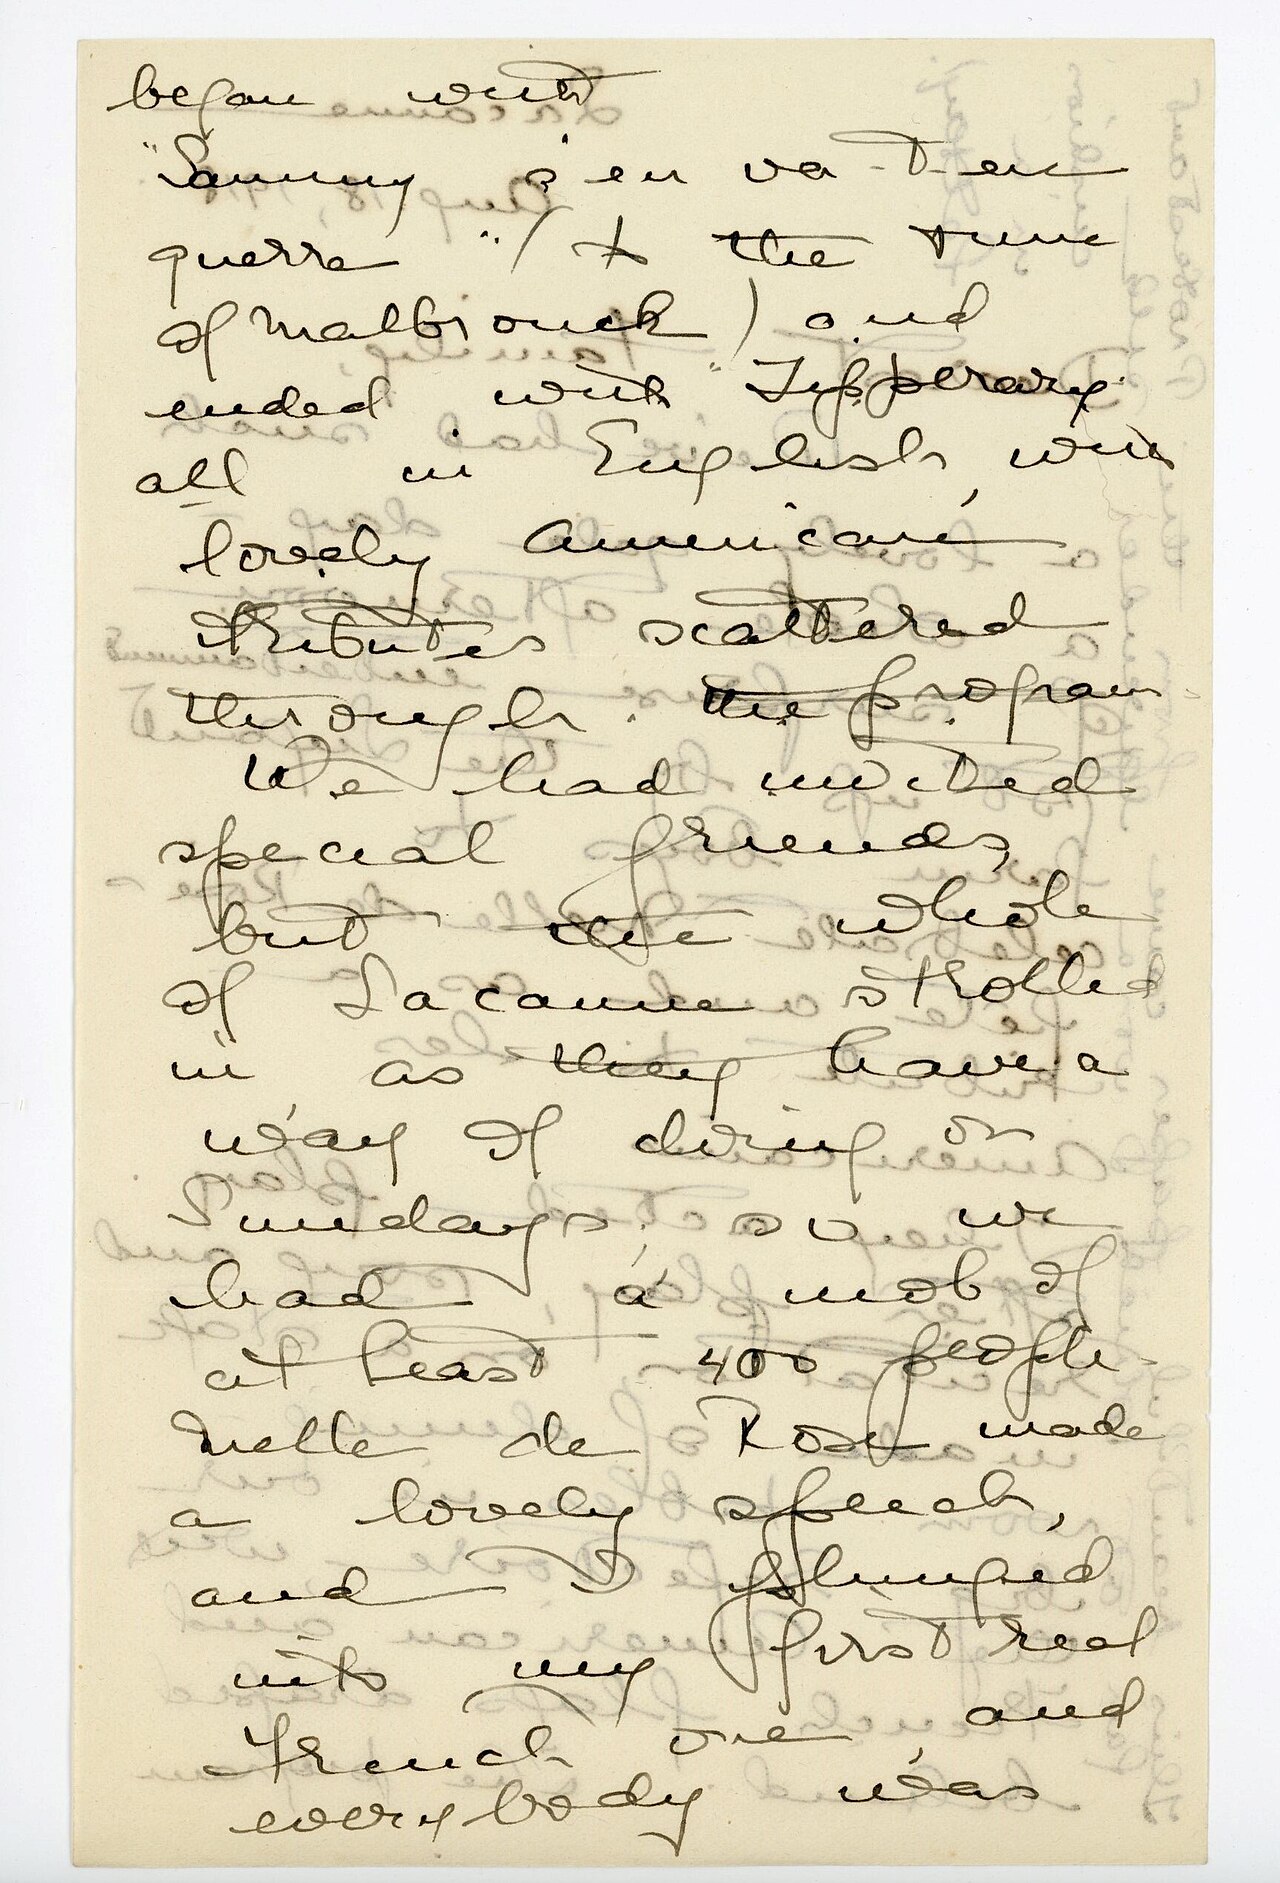 began with
"Sammy s'en va-t-en
guerre" (to the tune
of Malbrouck) and
ended with "Tipperary
all in English, with
lovely American
tributes scattered
through the program.
We had invited
special friends,
but the whole
of Lacaune strolled
in as they have a
way of doing on
Sundays, so we
had a mob of
at least 400 people.
Melle de Rose made
a lovely speech,
and I plunged
into my first real
French one, and
everybody was